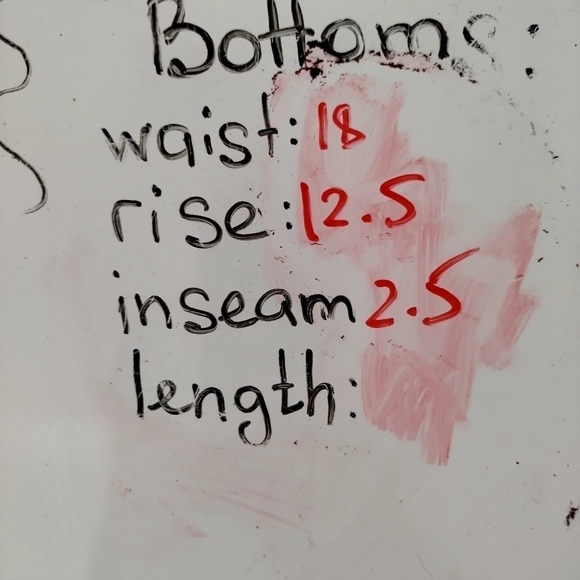 Bottoms:
waist: 18
rise: 12.5
inseam 2.5
length: